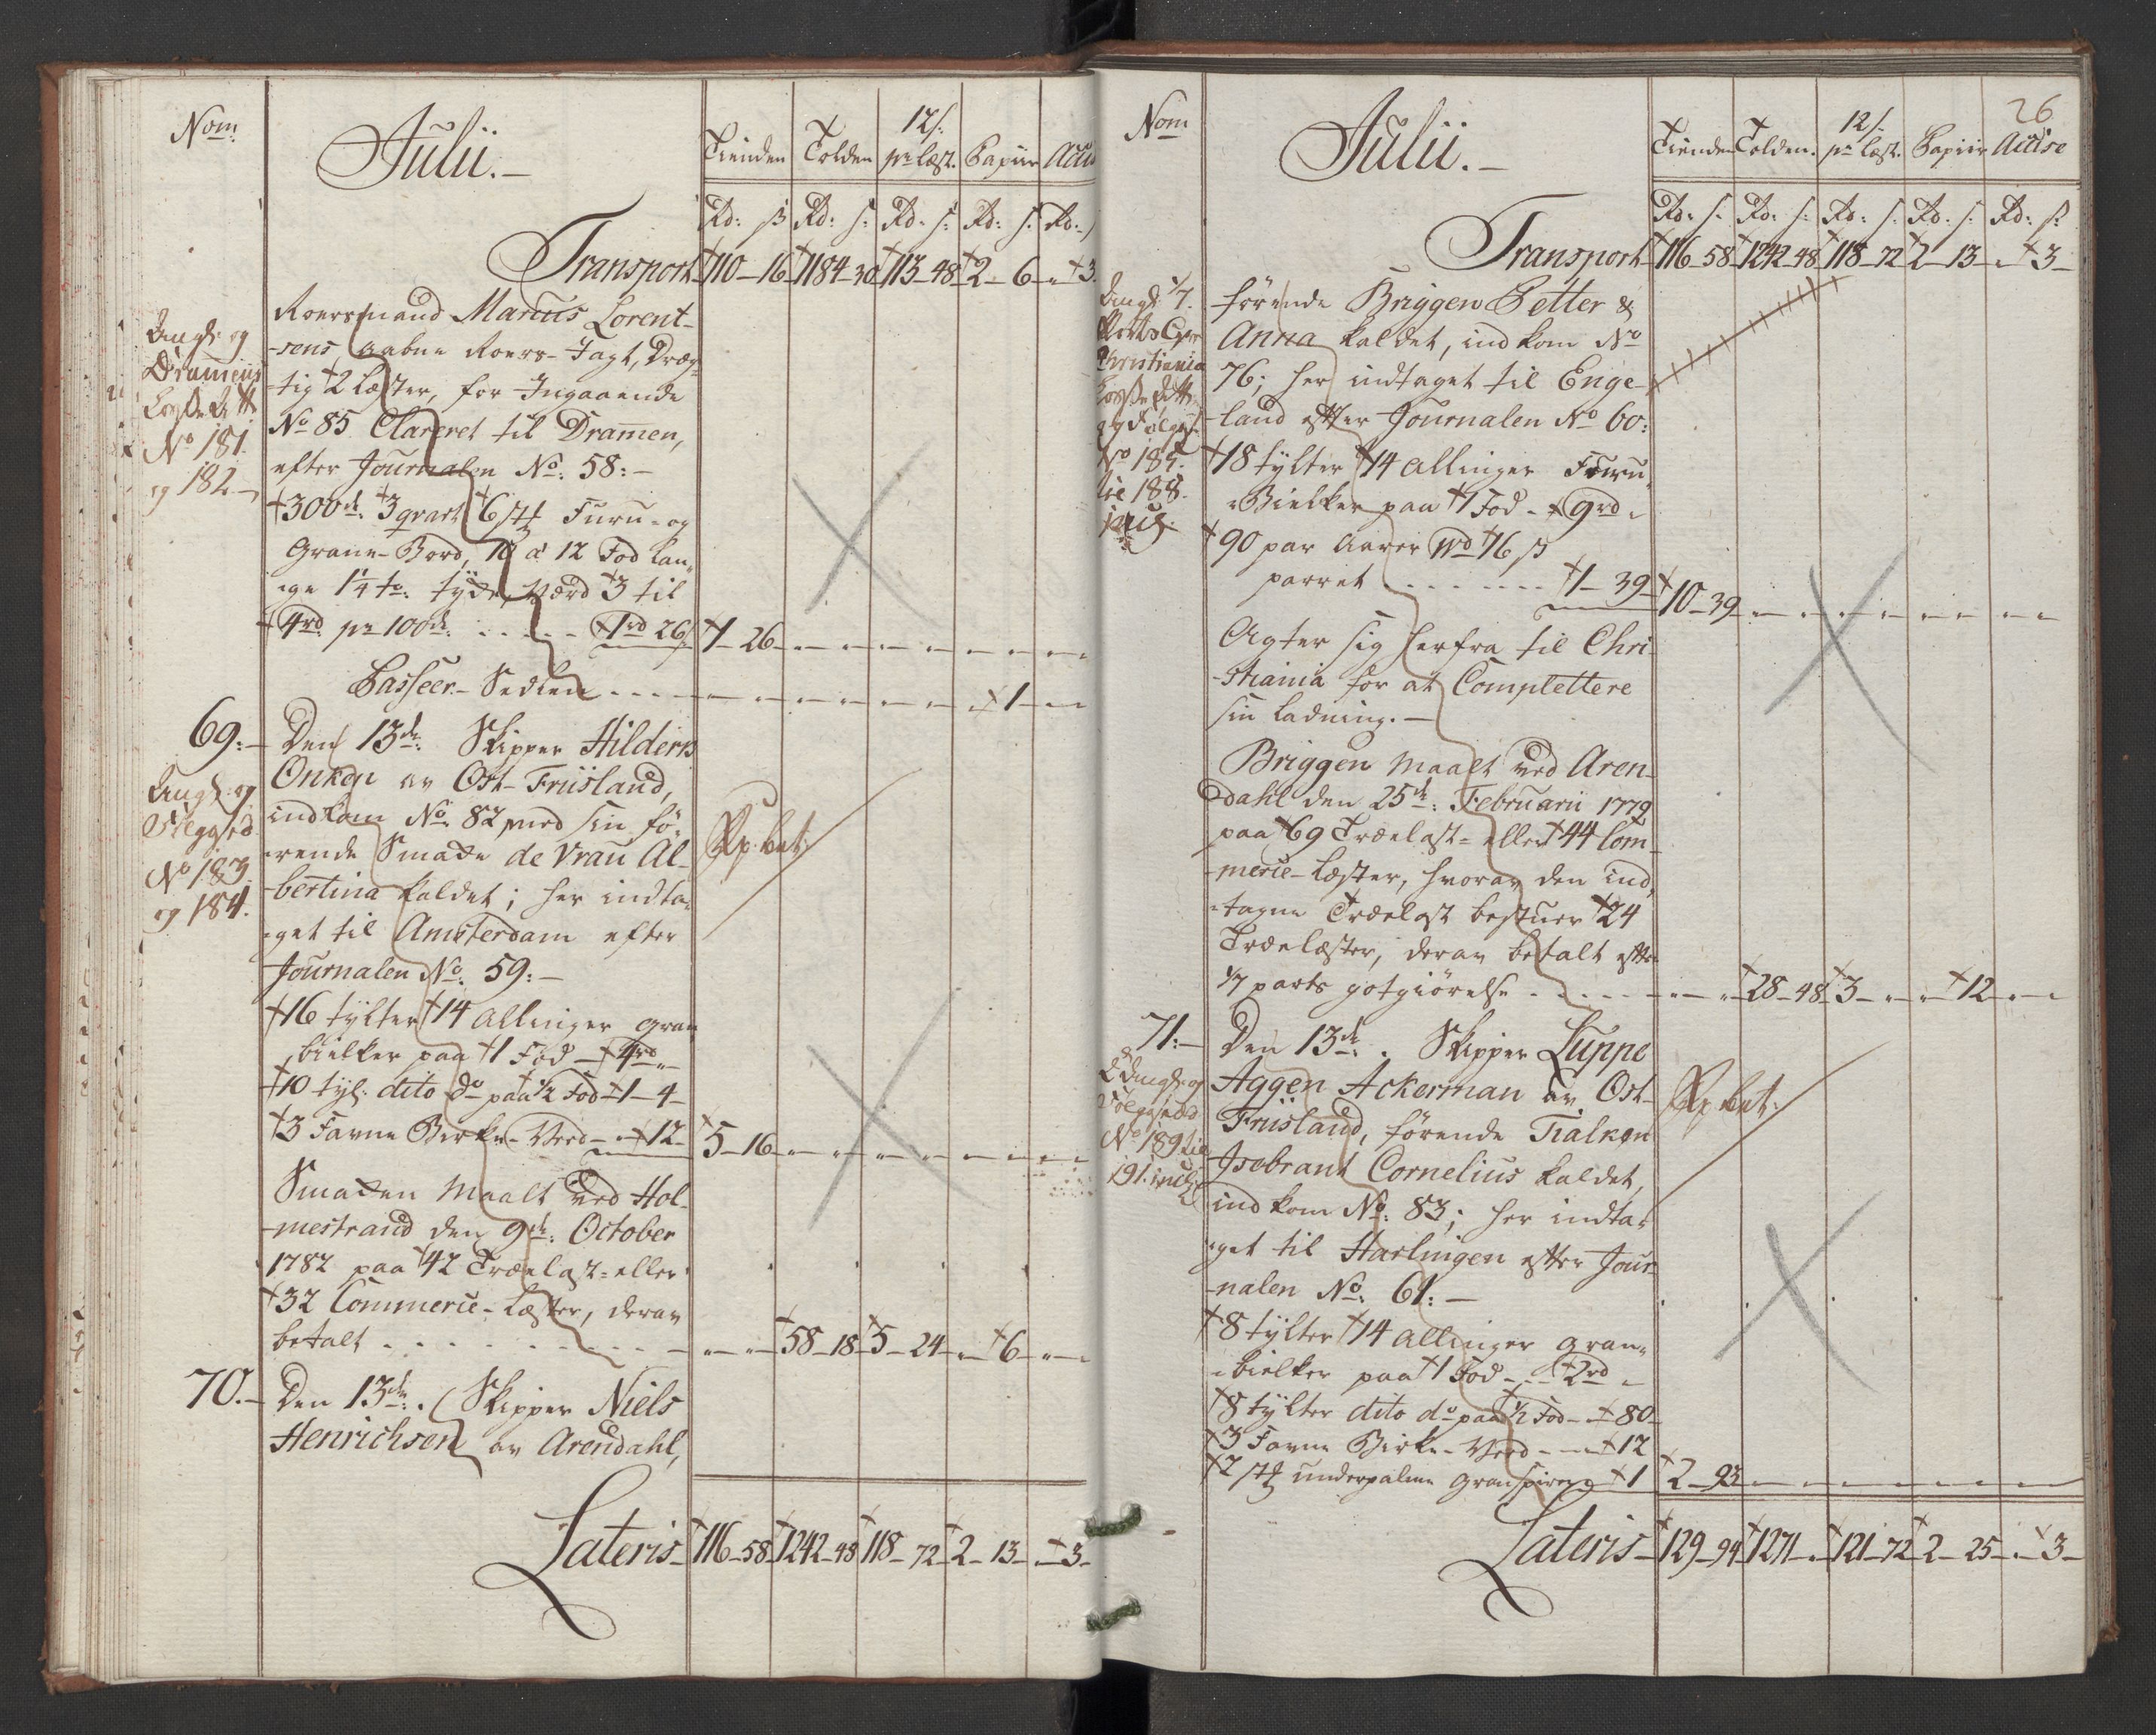 Nom
Julii.-
Tienden Tolden 12s: pr læst. Papiir Acci
Rd: ß Rd: s: Rd: s: Rd: s: Rd:
Transport †110-16 †1184-30 †113-48 †2-6 " †3
og
Dramens
No 181.
og 182
Roersmand Marcus Lorent-
-sens aabne Roers-Jagt, Dræg-
-tig †2 Læster, for Ingaaende
No 85 Clareret til Dramen,
efter Journalen No: 58:-
†300de: †3 qvart †6 st Furu- og
Grane-Bord, 10 a 12 Fod lan-
-ge 1¼ to: tyde, Værd †3 til
4rd: pr 100de: - - - †1rd 26 †1-26
Passeer-Sedlen - - - †1
69:- Den 13de: Skipper Hilderk
Onken av Ost-Friisland,
indkom No: 82 med sin fø-
-rende Smacke de Vrau Al-
-bertina kaldet; her indta-
-get til Amsterdam efter
Journalen No: 59:-
og
No 183.
og 184.
Rp. bet:
†16 tylter †14 allinger gran-
-bielker paa †1 Fod - †4rd "
†10 tyl: dito do paa †½ Fod †1-4-
†3 Favne Birke-Veed - " †12- †5-16
Smacken Maalt ved Hol-
-mestrand den 9de: October
1782 paa †42 Trælast- eller
†32 Commerce-Læster, derav
betalt - - - †58-18 †5-24 " †6
70.- Den 13de: Skipper Niels
Henrichsen av Arendahl,
Lateris- †116-58 †1242-48 †118-72 †2-13 " †3-
26
Nom
Julii.-
Tienden Tolden. 12s. pr læst. Papiir Accise
Rd: s. Rd: s: Rd: s. Rd: s: Rd: s:
Transport †116-58 †1242-48 †118-72 †2-13 " †3-
Christiania
No 185.
til 188.
incl:
førende Briggen Petter &
Anna kaldet, indkom No
76; her indtaget til Enge-
-land efter Journalen No 60:
†18 tylter †14 allinger Furu-
-Bielker paa †1 Fod - †9rd "
†90 par Aarer Wd †16 ß
parret - - - †1-39 †10-39
Agter sig herfra til Chri-
-stiania for at Complettere
sin Ladning.-
Briggen Maalt ved Aren-
-dahl den 25de: Februarii 1779
paa †69 Trælast- eller †44 Com-
-merce-Læster, hvorav den ind-
-tagne Trælast bestuer †24
Trælæster, derav betalt efter
1/7 parts gotgiørelse - - - †28-48 †3 " †12
71:- Den 13de: Skipper Luppe
Aggen Ackerman av Ost-
Friisland, førende Tialken
Isebrant Cornelius kaldet,
indkom No: 83; her indta-
-get til Harlingen efter Jour-
-nalen No: 61:-
No 189 til
191. incl:
Rp. bet:
†8 tylter †14 allinger gran-
-bielker paa †1 Fod - †2rd "
†8 tylter dito do paa †½ Fod - †80-
†3 Favne Birke-Veed - - †12
†2 st underpalme granspirer †1 †2-93
Lateris- †129-94 †1271 " †121-72 †2-25 " †3-